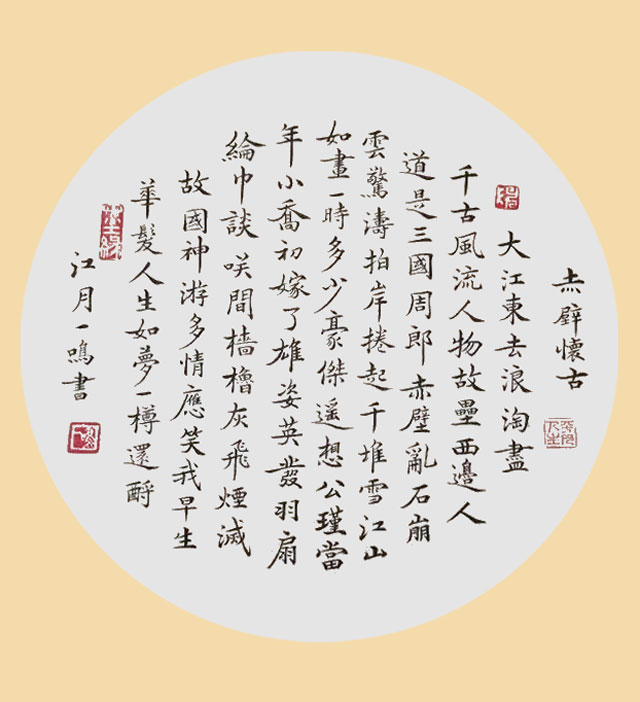 赤壁懷古
大江東去浪淘盡
千古風流人物故壘西邊人
道是三國周郎赤壁亂石崩
雲驚濤拍岸捲起千堆雪江山
如畫一時多少豪傑遙想公瑾當
年小喬初嫁了雄姿英發羽扇
綸巾談咲間檣櫓灰飛煙滅
故國神游多情應笑我早生
華髮人生如夢一樽還酹
江月一鳴書